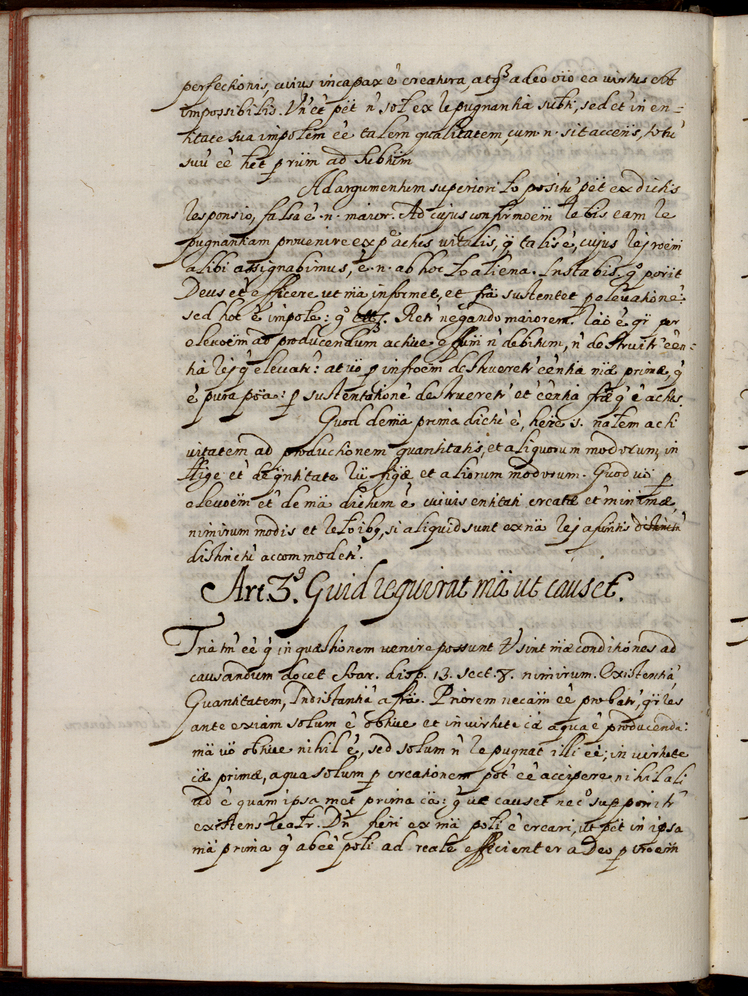 perfectionis, cuius incapax ē creatura, atq3 adeo oīo ea virtus ēēt
impossibilis. Un̄ et pēt n̄ sol ex repugnantia subti, sed et in en=
titate sua impolem ēē talem qualitatem, cum n. sit accēns, totū
suū ēē het p rium ad subtum
Ad argumentum superiori Lo positū pēt ex dictis
responsio, falsa ē n. maior. Ad cujus confirmoēm le
pugnantiam provenire ex p actus vitalis, q̄ talis ē, cujus
alibi assignabimus, ē n. ab hoc Lo aliena. Instabis, gº porit
Deus et efficere ut mā informet, et frā sustentet p elevationē:
sed hoc ē impole: gº. Retr negando maiorem. raō ē qr per
elevoēm ad producendum active effum n̄ debitum, n̄ destruitr ēēn=
tia rej q̄ elevatr: at vō p infroēm destrueretr ēēntia māe primæ, q̄
ē pura pōa: p sustentationē destrueretr et ēēntia frāe q̄ ē actus.
Quod demā prima dictū ē, here s. nalem acti
vitatem ad productionem quantitatis, et aliquorum modorum, in
tlige et de qntitate figāe et aliorum modorum. Quod vō p
elevoēm et de mā dictum ē cuivis entitati creatæ et minimæ
nimirum modis et, si aliquid sunt ex nā rej a suntis
distincti accommodetr.
Art. 3.º Quid requirat mā ut causet.
Tria tm̄ ēē q̄ in quæstionem venire possunt Ut sint māe conditiones ad
causandum docet Soar. disp. 13. sect. 8. nimirum. Existentiā
Quantitatem, Indistantiā a frā. Priorem necam ēē probatr, qr res
ante exiam solum ē obtive et in virtute cā a qua ē producenda:
mā vō obtive nihil ē, sed solum n̄ repugnat illi ēē; in virtute
cāe primæ, a qua solum p creationem pot ēē accipere nihil ali
ud ē quam ipsa met prima cā: q̄ uæ causet necº supponitr
existens realr. Dn̄ fieri ex mā poti ē creari, ut pēt in ipsa
mā prima q̄ ab ēē poti ad reale efficienter a Deo p creoēm